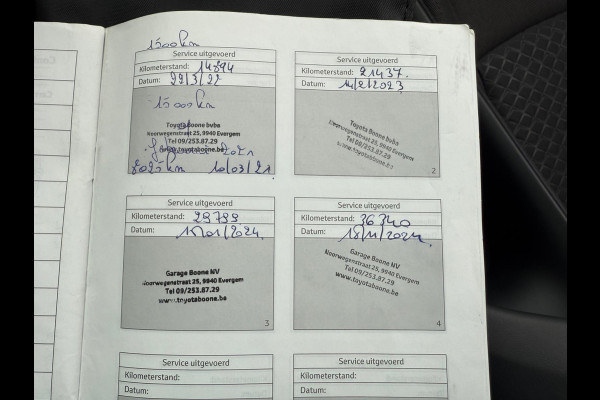 1500km
Service uitgevoerd
Kilometerstand: 14894
Datum: 22/3/22
15000km
Toyota Boone bvba
Noorwegenstraat 25, 9940 Evergem
Tel 09/253.87.29
www.toyotaboone.be
10/03/21
Service uitgevoerd
Kilometerstand: 21437.
Datum: 14/2/2023
Toyota Boone bvba
Noorwegenstraat 25, 9940 Evergem
Tel 09/253.87.29
www.toyotaboone.be
2
Service uitgevoerd
Kilometerstand: 29799
Datum: /01/2024.
Garage Boone NV
Noorwegenstraat 25, 9940 Evergem
Tel 09/253.87.29
www.toyotaboone.be
3
Service uitgevoerd
Kilometerstand: 36340
Datum: 18/11/2024.
Garage Boone NV
Noorwegenstraat 25, 9940 Evergem
Tel 09/253.87.29
www.toyotaboone.be
4
Service uitgevoerd
Kilometerstand:
Datum:
Service uitgevoerd
Kilometerstand:
Datum: